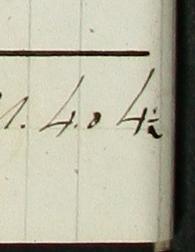 1. 4.0 4½